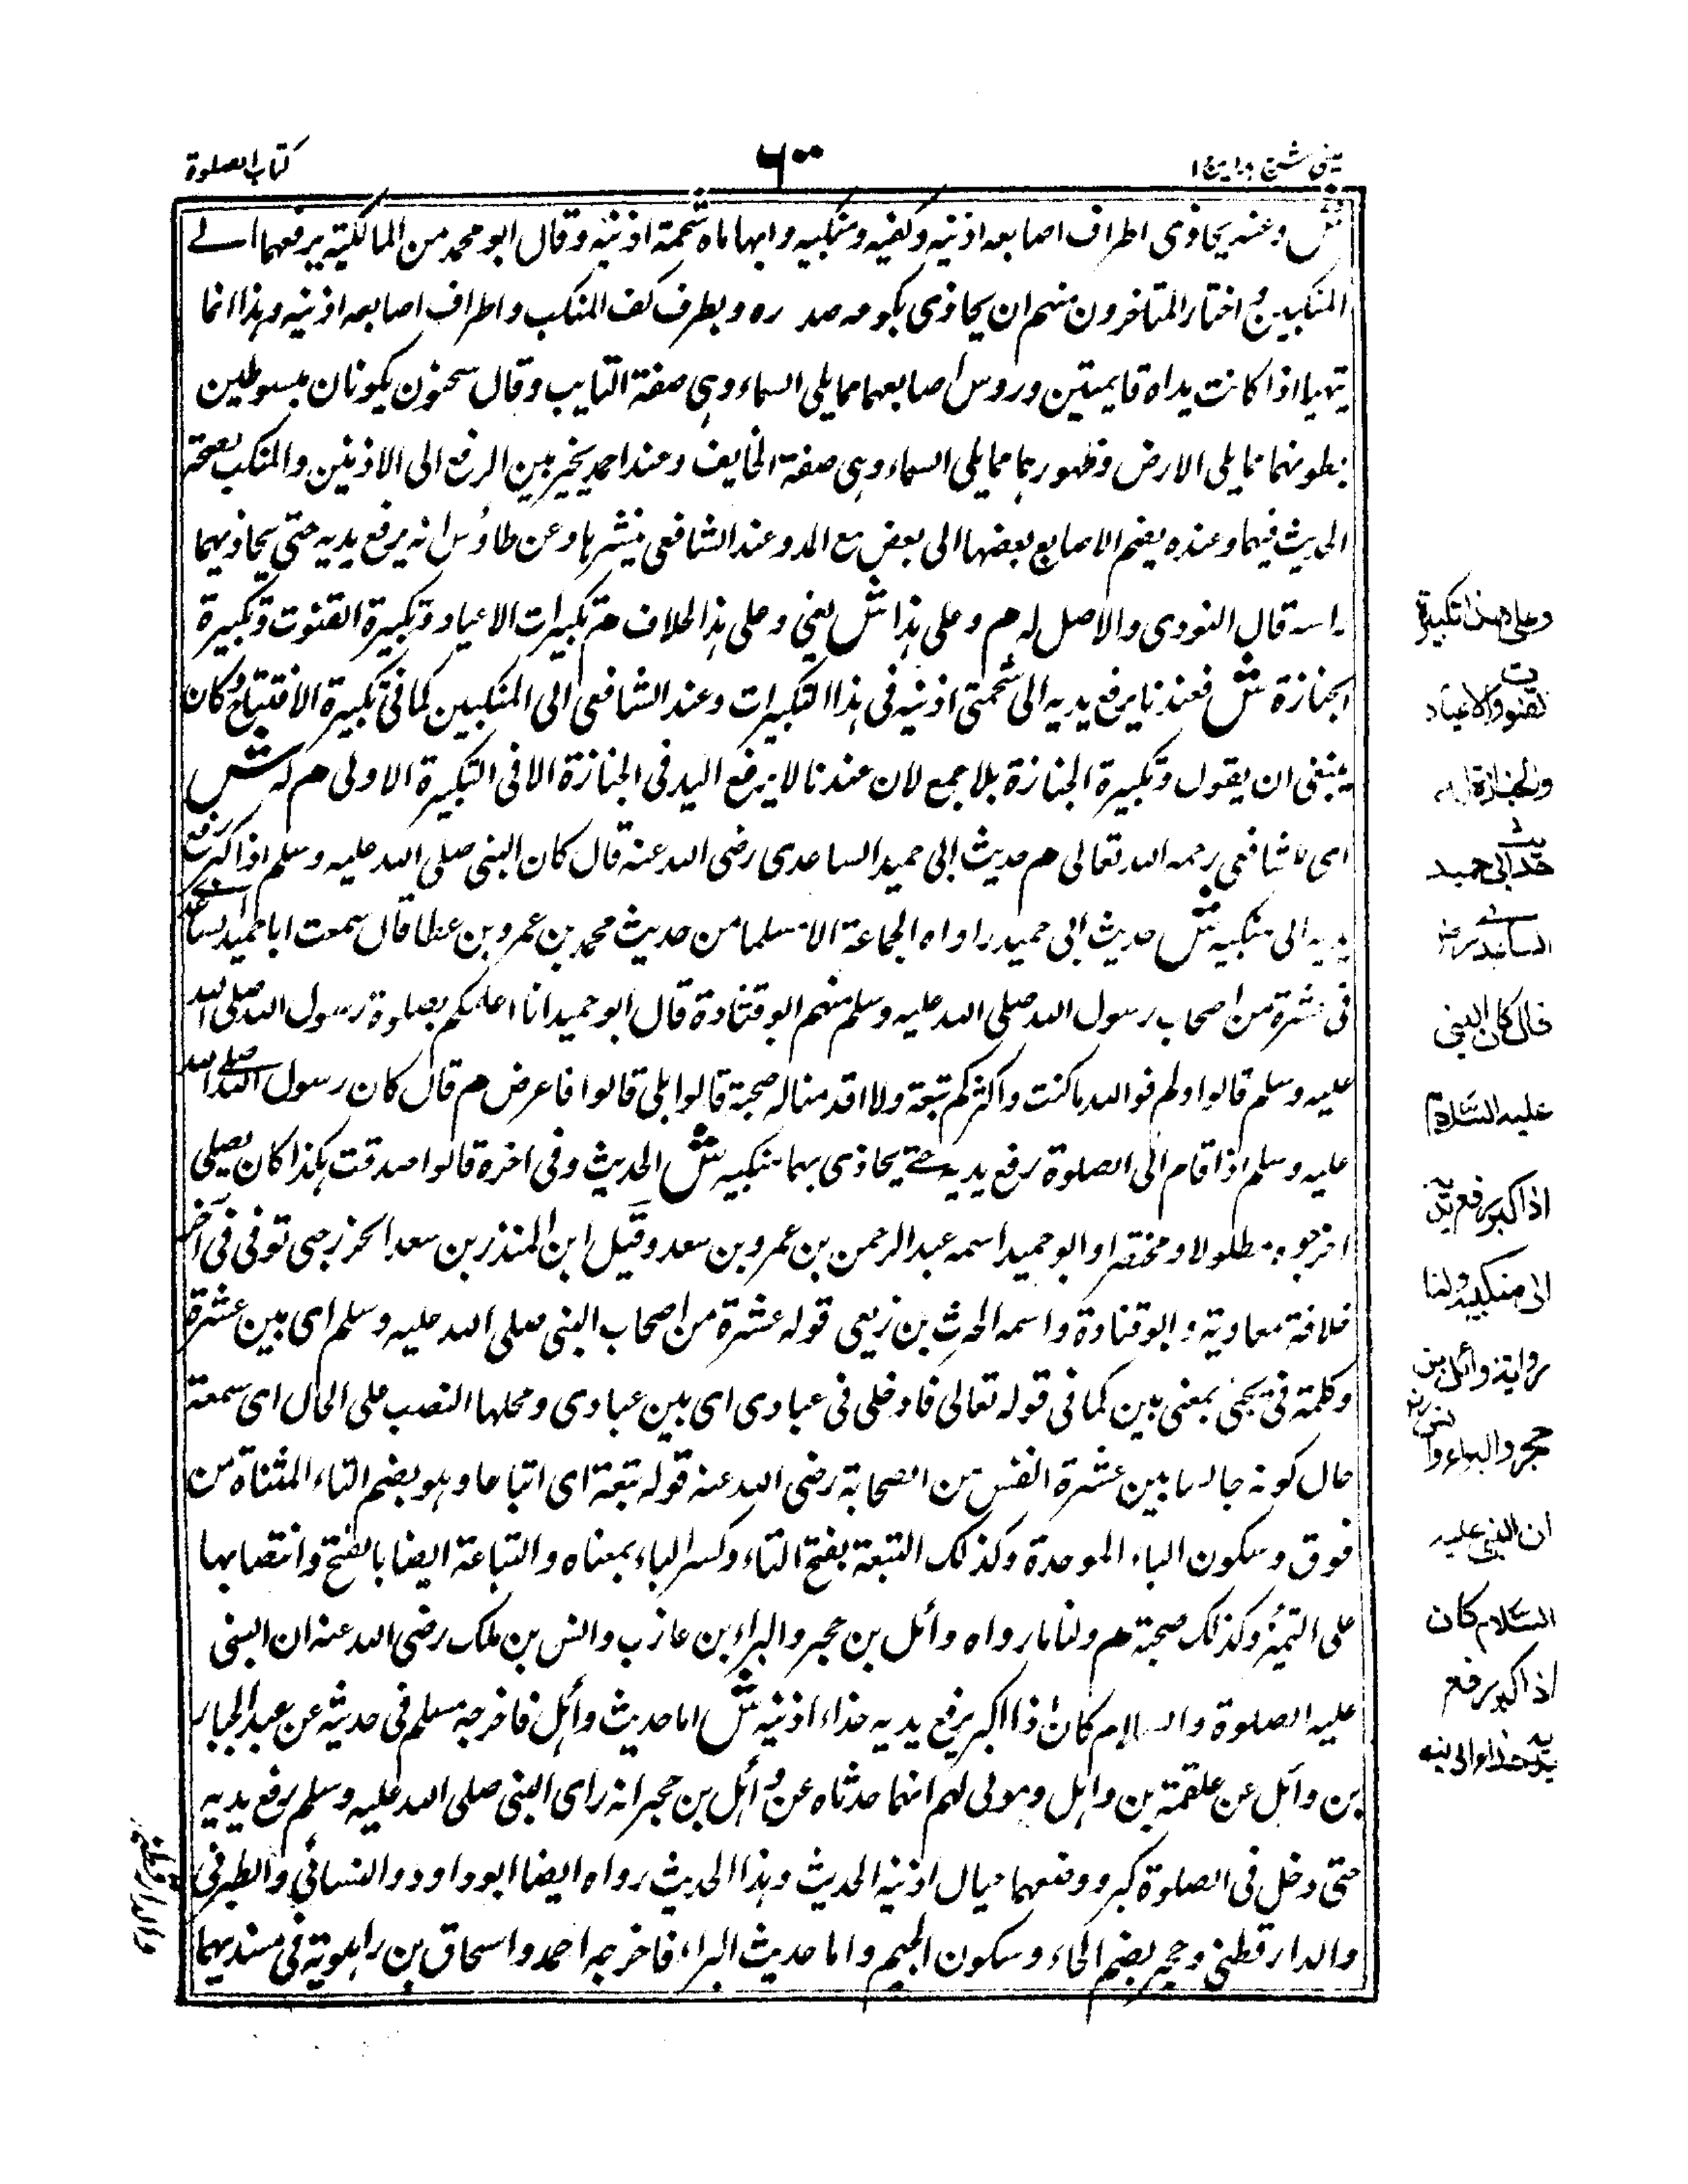 عینی شرح ہدایہ ج ۱
۶۰۰
کتاب الصلوة
مثل وعنہ یحاذی اطراف اصابعہ اذنیہ وکفیہ ومنکبیہ وابہاماہ شحمة اذنیہ وقال ابو محمد من المالکیة یرفعہما الے
المنکبین واختار المتاخرون منہم ان یحاذی بکوعہ صدرہ وبطرف کف المنکب واطراف اصابعہ اذنیہ وہذا انما
یتہیا اذا کانت یداہ قایمتین وروس اصابعہما مما یلی السماء وہی صفة التایب وقال سحنون یکونان مبسوطین
بطونہما مما یلی الارض وظہورہما مما یلی السماء وہی صفة الخایف وعند احمد یخیر بین الرفع الی الاذنین والمنکب لصحة
الحدیث فیہما وعندہ یضم الاصابع بعضہا الی بعض مع المد وعند الشافعی ینشرہا وعن طاؤس انہ یرفع یدیہ حتی یحاذیہما
راسہ قال النووی والاصل لہ م وعلی ہذا ش یعنی وعلی ہذا الخلاف م تکبیرات الاعیاد وتکبیرة القنوت وتکبیرة
الجنازة ش فعندنا یرفع یدیہ الی شحمتی اذنیہ فی ہذا التکبیرات وعند الشافعی الی المنکبین کما فی تکبیرة الافتتاح وکان
ینبغی ان یقول وتکبیرة الجنازة بلا جمع لان عندنا لا یرفع الید فی الجنازة الا فی التکبیرة الاولی م لہ ش
ای للشافعی رحمہ اللہ تعالی م حدیث ابی حمید الساعدی رضی اللہ عنہ قال کان النبی صلی اللہ علیہ وسلم اذا کبر رفع
یدیہ الی منکبیہ ش حدیث ابی حمید راواہ الجماعة الا مسلما من حدیث محمد بن عمرو بن عطا قال سمعت ابا حمید الساعدے
فی عشرة من اصحاب رسول اللہ صلی اللہ علیہ وسلم منہم ابو قتادة قال ابو حمید انا اعلمکم بصلوة رسول اللہ صلی اللہ
علیہ وسلم قالوا ولم فواللہ ماکنت واکثرکم تبعة ولا اقدمنا لہ صحبة قالوا بلی قالوا فاعرض م قال کان رسول اللہ صلی اللہ
علیہ وسلم اذا قام الی الصلوة رفع یدیہ حتے یحاذی بہما منکبیہ ش الحدیث وفی اخرہ قالوا صدقت ہکذا کان یصلی
اخرجوہ مطلولا ومختصرا وابو حمید اسمہ عبد الرحمن بن عمرو بن سعد وقیل ابن المنذر بن سعد الخزرجی توفی فی آخر
خلافة معاویة وابو قتادة واسمہ الحرث بن ربعی قولہ عشرة من اصحاب النبی صلی اللہ علیہ وسلم ای بین عشرة
وکلمة فی یجئ بمعنی بین کما فی قولہ تعالی فادخلی فی عبادی ای بین عبادی ومحلہا النصب علی الحال ای سمعتہ
حال کونہ جالسا بین عشرة انفس من الصحابة رضی اللہ عنہ قولہ تبعة ای اتباعا وہو بضم التاء المثناة من
فوق وسکون الباء الموحدة وکذلک التبعة بفتح التاء وکسر الباء بمعناہ والتباعة ایضا بالفتح وانتصابہا
علی التمیز وکذلک صحبة م ولنا ما رواہ وائل بن حجر والبراء بن عازب وانس بن ملک رضی اللہ عنہ ان النبی
علیہ الصلوة والسلام کان اذا اکبر یرفع یدیہ حذاء اذنیہ ش اما حدیث وائل فاخرجہ مسلم فی حدیثہ عن عبد الجبار
بن وائل عن علقمة بن وایل ومولی لہم انہما حدثاہ عن وائل بن حجر انہ رای النبی صلی اللہ علیہ وسلم رفع یدیہ
حتی دخل فی الصلوة کبر ووضعہما حیال اذنیہ الحدیث وہذا الحدیث رواہ ایضا ابو داود والنسائی والطبرانی
والدارقطنی وحجر بضم الحاء وسکون الجیم واما حدیث البراء فاخرجہ احمد واسحاق بن راہویة فی مسندیہما
وعلی ھذا تکبیرة
القنوت والاعیاد
والجنازة لہ
حدیث ابی حمید
الساعدے رض
قال کان النبی
علیہ السلام
اذا کبر رفع یدیہ
الی منکبیہ ولنا
روایة وائل بن
حجر والبراء وانس رض
ان النبی علیہ
السلام کان
اذا کبر رفع
یدیہ حذاء اذنیہ